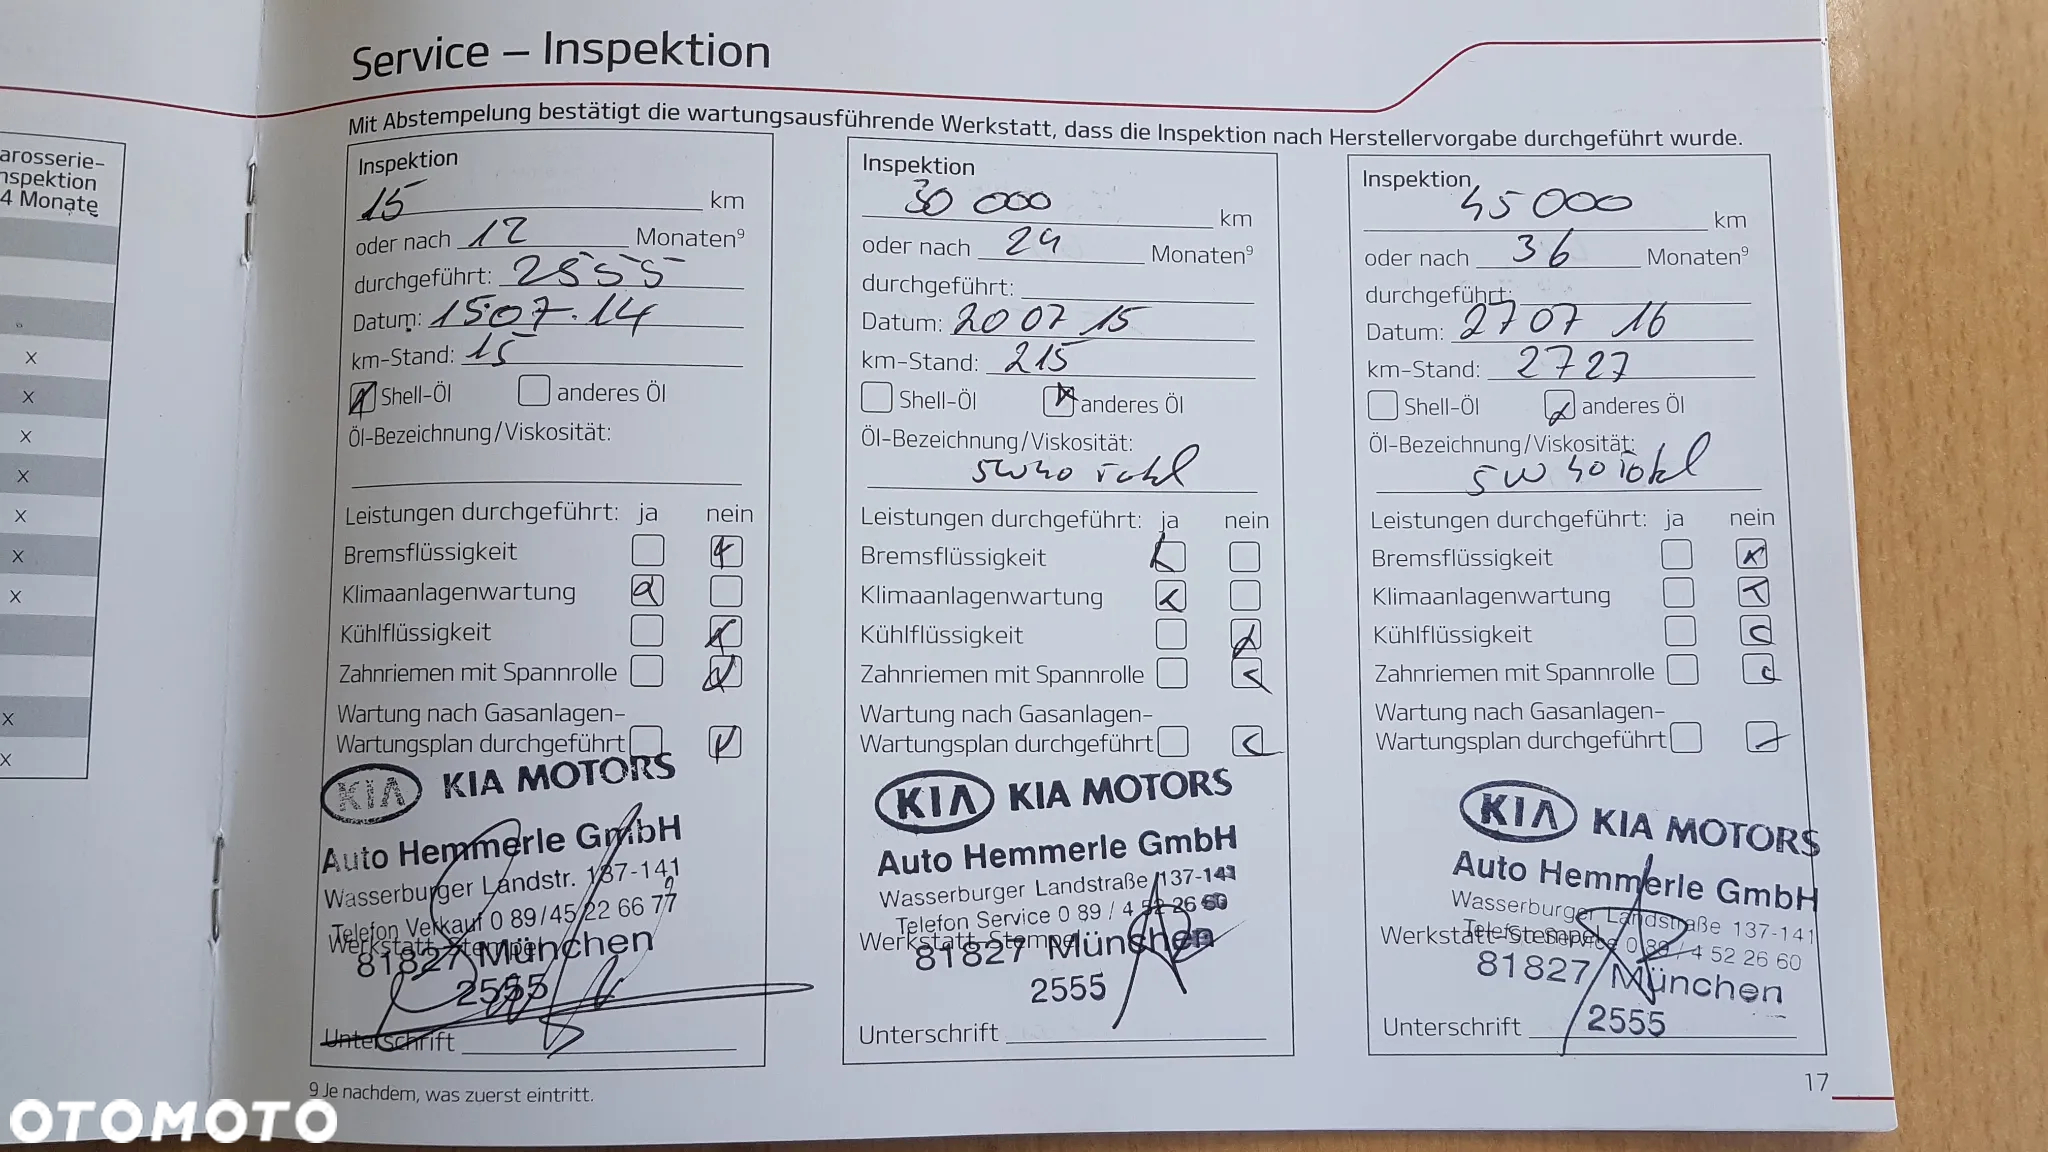 arosserie-
nspektion
4 Monate
x
x
x
x
x
x
x
x
x
Service – Inspektion
Mit Abstempelung bestätigt die wartungsausführende Werkstatt, dass die Inspektion nach Herstellervorgabe durchgeführt wurde.
Inspektion
15 km
oder nach 12 Monaten9
durchgeführt: 2555
Datum: 15.07.14
km-Stand: 15
Shell-Öl anderes Öl
Öl-Bezeichnung/Viskosität:
Leistungen durchgeführt: ja nein
Bremsflüssigkeit
Klimaanlagenwartung
Kühlflüssigkeit
Zahnriemen mit Spannrolle
Wartung nach Gasanlagen-
Wartungsplan durchgeführt
KIA KIA MOTORS
Auto Hemmerle GmbH
Wasserburger Landstr. 137-141
Telefon Verkauf 0 89/45 22 66 77
Werkstatt-Stempel
81827 München
2555
Unterschrift
Inspektion
30 000 km
oder nach 24 Monaten9
durchgeführt:
Datum: 20 07 15
km-Stand: 215
Shell-Öl anderes Öl
Öl-Bezeichnung/Viskosität:
5W40 Total
Leistungen durchgeführt: ja nein
Bremsflüssigkeit
Klimaanlagenwartung
Kühlflüssigkeit
Zahnriemen mit Spannrolle
Wartung nach Gasanlagen-
Wartungsplan durchgeführt
KIA KIA MOTORS
Auto Hemmerle GmbH
Wasserburger Landstraße 137-141
Telefon Service 0 89 / 4 52 26 60
Werkstatt-Stempel
81827 München
2555
Unterschrift
Inspektion
45 000 km
oder nach 36 Monaten9
durchgeführt:
Datum: 27 07 16
km-Stand: 2727
Shell-Öl anderes Öl
Öl-Bezeichnung/Viskosität:
5W40 Total
Leistungen durchgeführt: ja nein
Bremsflüssigkeit
Klimaanlagenwartung
Kühlflüssigkeit
Zahnriemen mit Spannrolle
Wartung nach Gasanlagen-
Wartungsplan durchgeführt
KIA KIA MOTORS
Auto Hemmerle GmbH
Wasserburger Landstraße 137-141
Telefon Service 0 89 / 4 52 26 60
Werkstatt-Stempel
81827 München
2555
Unterschrift
9 Je nachdem, was zuerst eintritt.
17
OTOMOTO